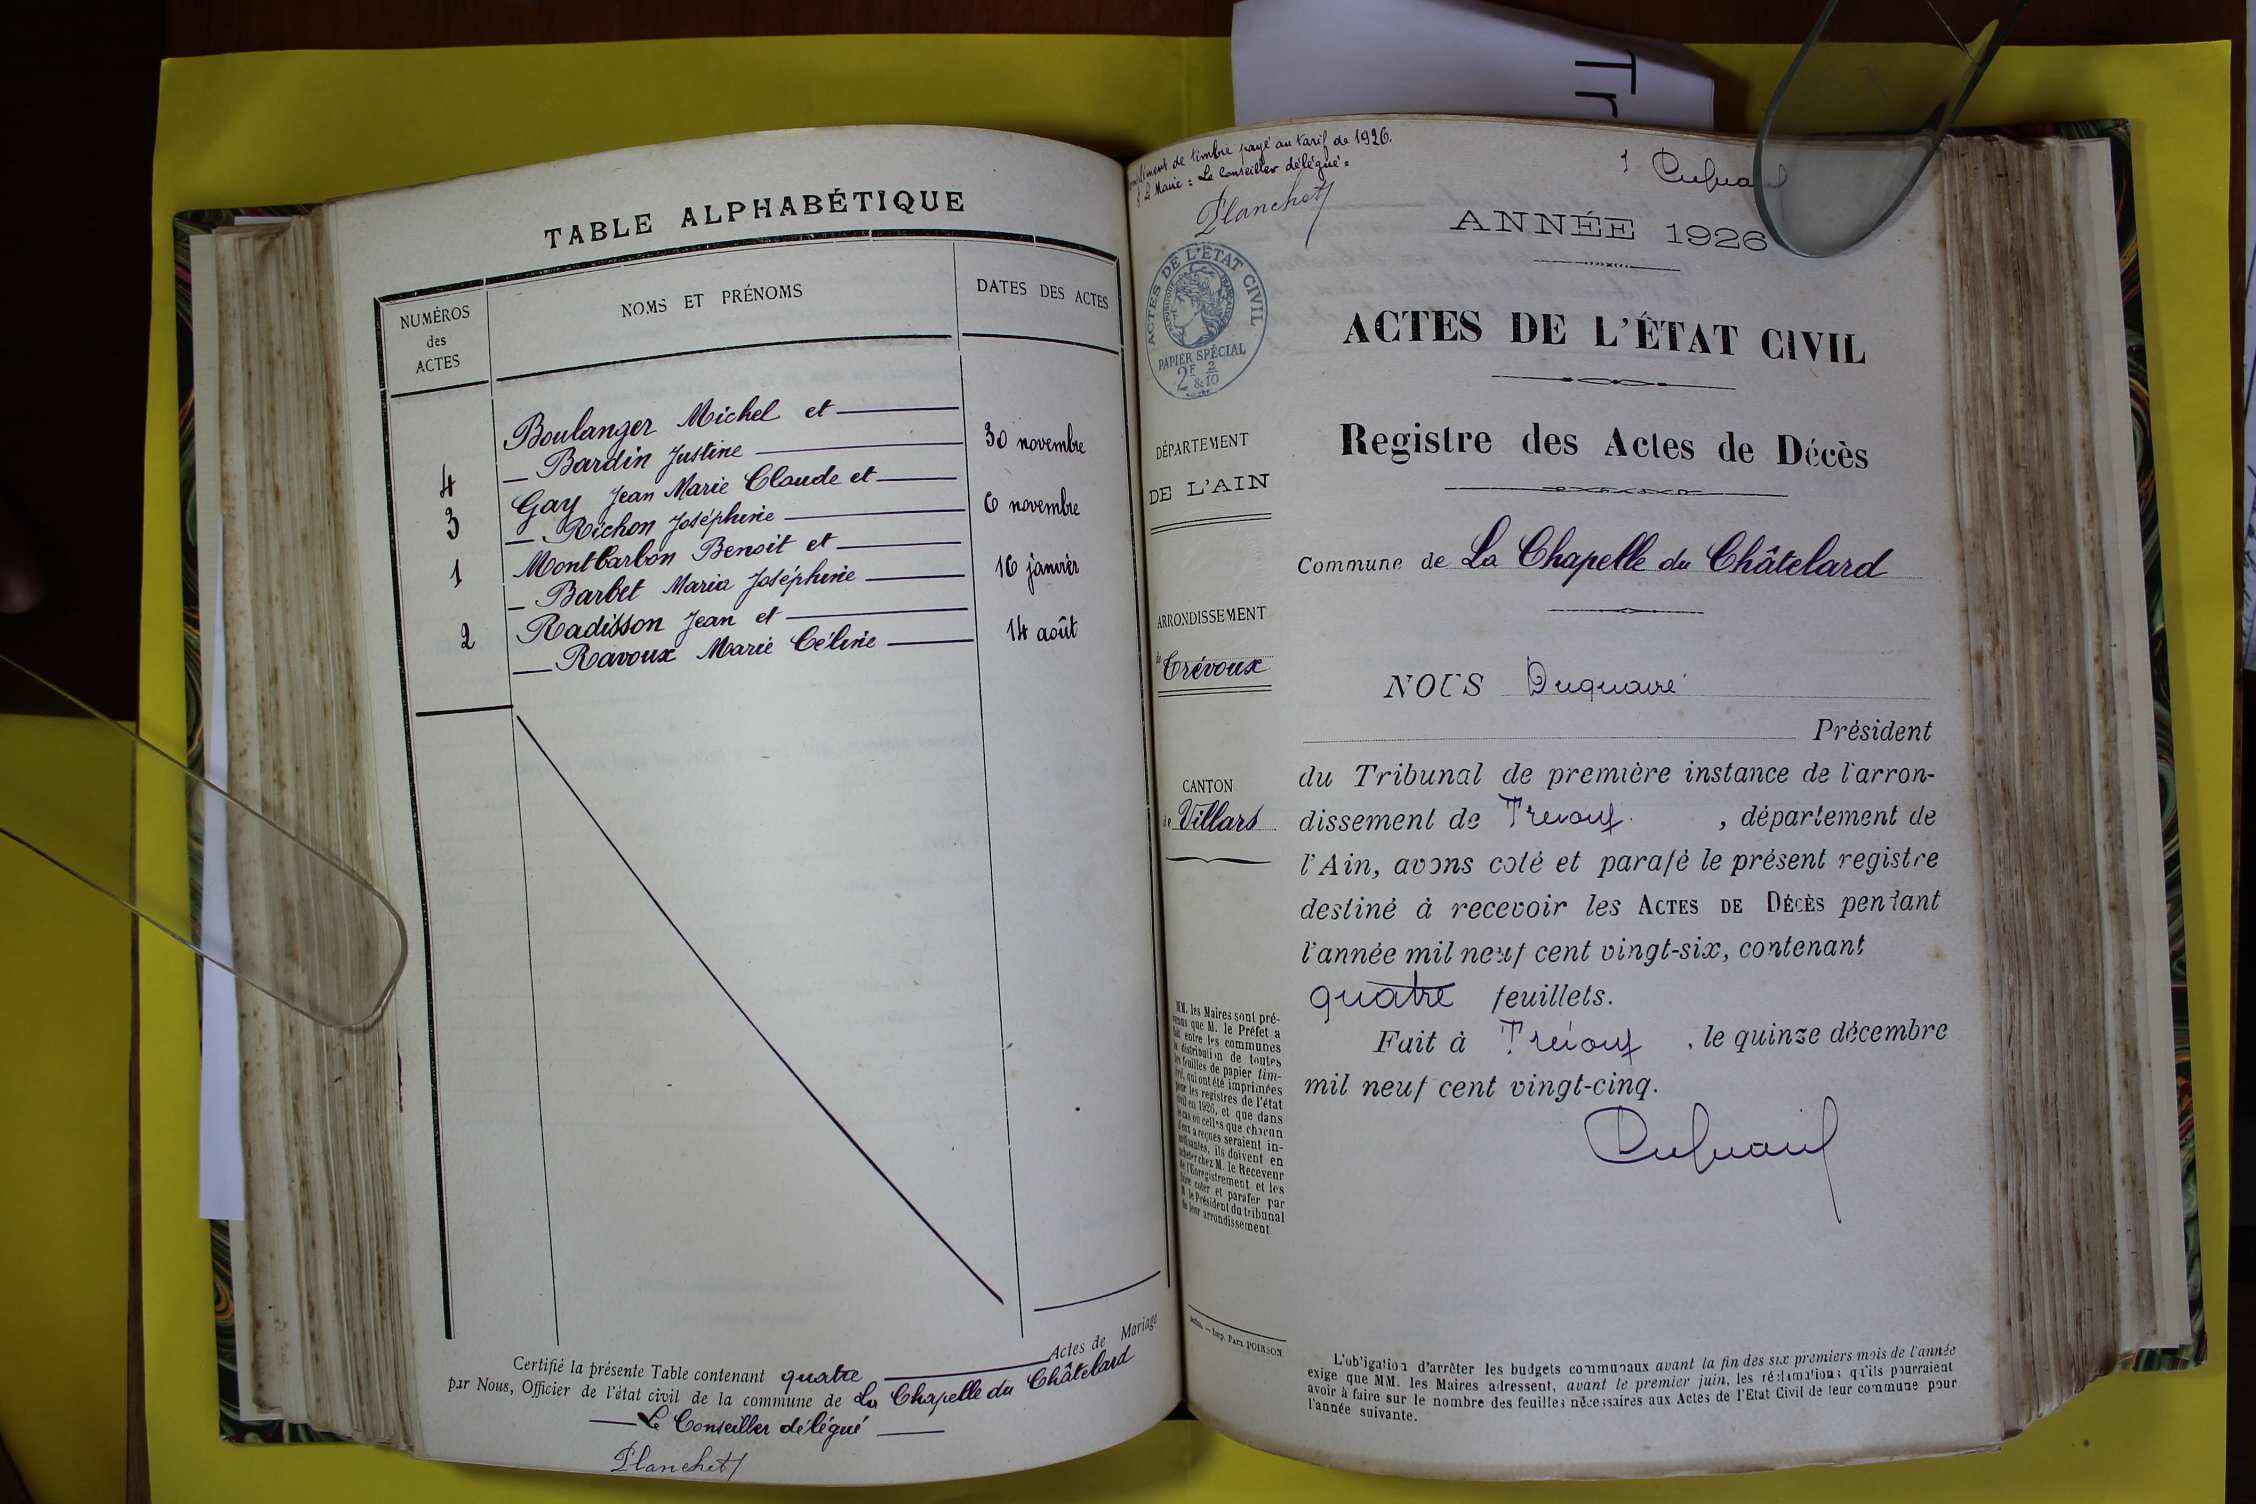 TABLE ALPHABÉTIQUE
NUMÉROS
des
ACTES
NOMS ET PRÉNOMS
DATES DES ACTES
Boulanger Michel et
4 Bardin Justine 30 novembre
Gay Jean Marie Claude et
3 Richon Joséphine 6 novembre
Montbarbon Benoit et
1 Barbet Maria Joséphine 16 janvier
Radisson Jean et
2 Ravoux Marie Céline 14 août
Certifié la présente Table contenant quatre Actes de Mariage
par Nous, Officier de l'état civil de la commune de La Chapelle du Châtelard
Le Conseiller délégué
Planchet
de timbre payé au tarif de 1926.
Le Maire = Le Conseiller délégué =
Planchet
ACTES DE L'ÉTAT CIVIL
RÉPUBLIQUE FRANÇAISE
PAPIER SPÉCIAL
2F 2
& 10
DÉPARTEMENT
DE L'AIN
ARRONDISSEMENT
de Trévoux
CANTON
de Villars
MM. les Maires sont pré-
venus que M. le Préfet a
fait entre les communes
la distribution de toutes
les feuilles de papier tim-
bré, qui ont été imprimées
pour les registres de l'état
civil en 1926, et que dans
le cas où celles que chacun
d'eux a reçues seraient in-
suffisantes, ils doivent en
acheter chez M. le Receveur
de l'Enregistrement et les
faire coter et parafer par
M. le Président du tribunal
de leur arrondissement.
Imp. Paul POIRSON.
1
ANNÉE 1926
ACTES DE L'ÉTAT CIVIL
Registre des Actes de Décès
Commune de La Chapelle du Châtelard
NOUS Duquaire
Président
du Tribunal de première instance de l'arron-
dissement de Trévoux, département de
l'Ain, avons coté et parafé le présent registre
destiné à recevoir les ACTES DE DÉCÈS pendant
l'année mil neuf cent vingt-six, contenant
quatre feuillets.
Fait à Trévoux, le quinze décembre
mil neuf cent vingt-cinq.
L'obligation d'arrêter les budgets communaux avant la fin des six premiers mois de l'année
exige que MM. les Maires adressent, avant le premier juin, les réclamations qu'ils pourraient
avoir à faire sur le nombre des feuilles nécessaires aux Actes de l'Etat Civil de leur commune pour
l'année suivante.
Tr